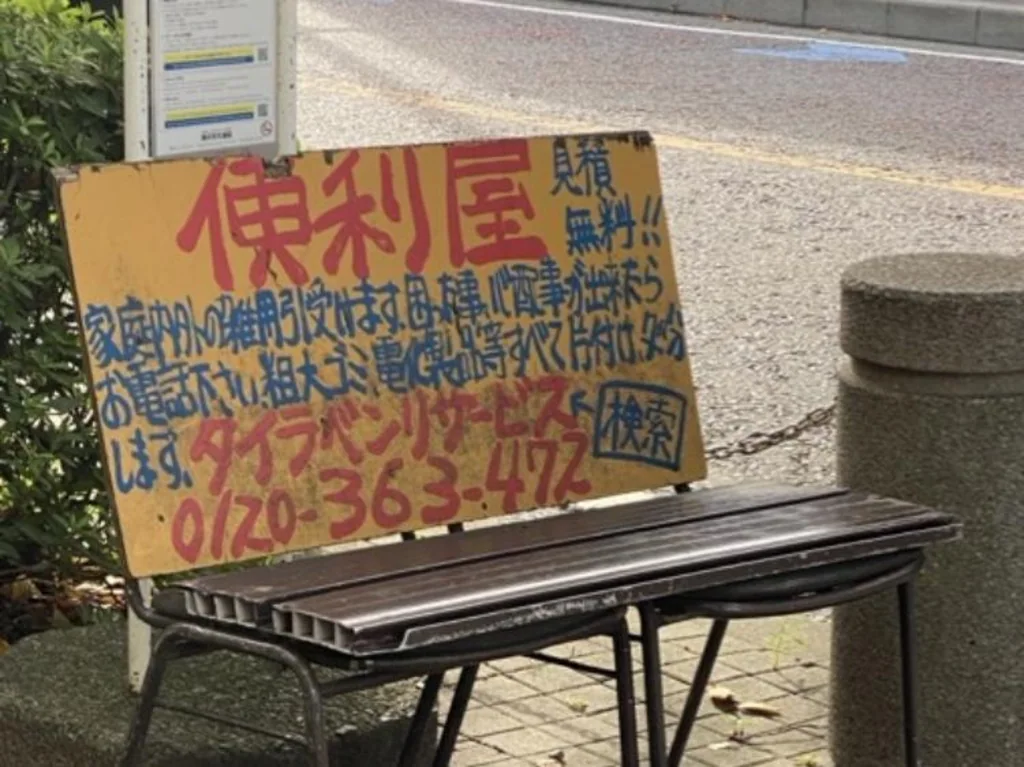 便利屋
見積
無料!!
家庭内外の雑用引受けます。困った事、心配事が出来たら
お電話下さい。粗大ゴミ、電化製品等すべて片付け、処分
します。タイラベンリサービス
検索
0120-363-472